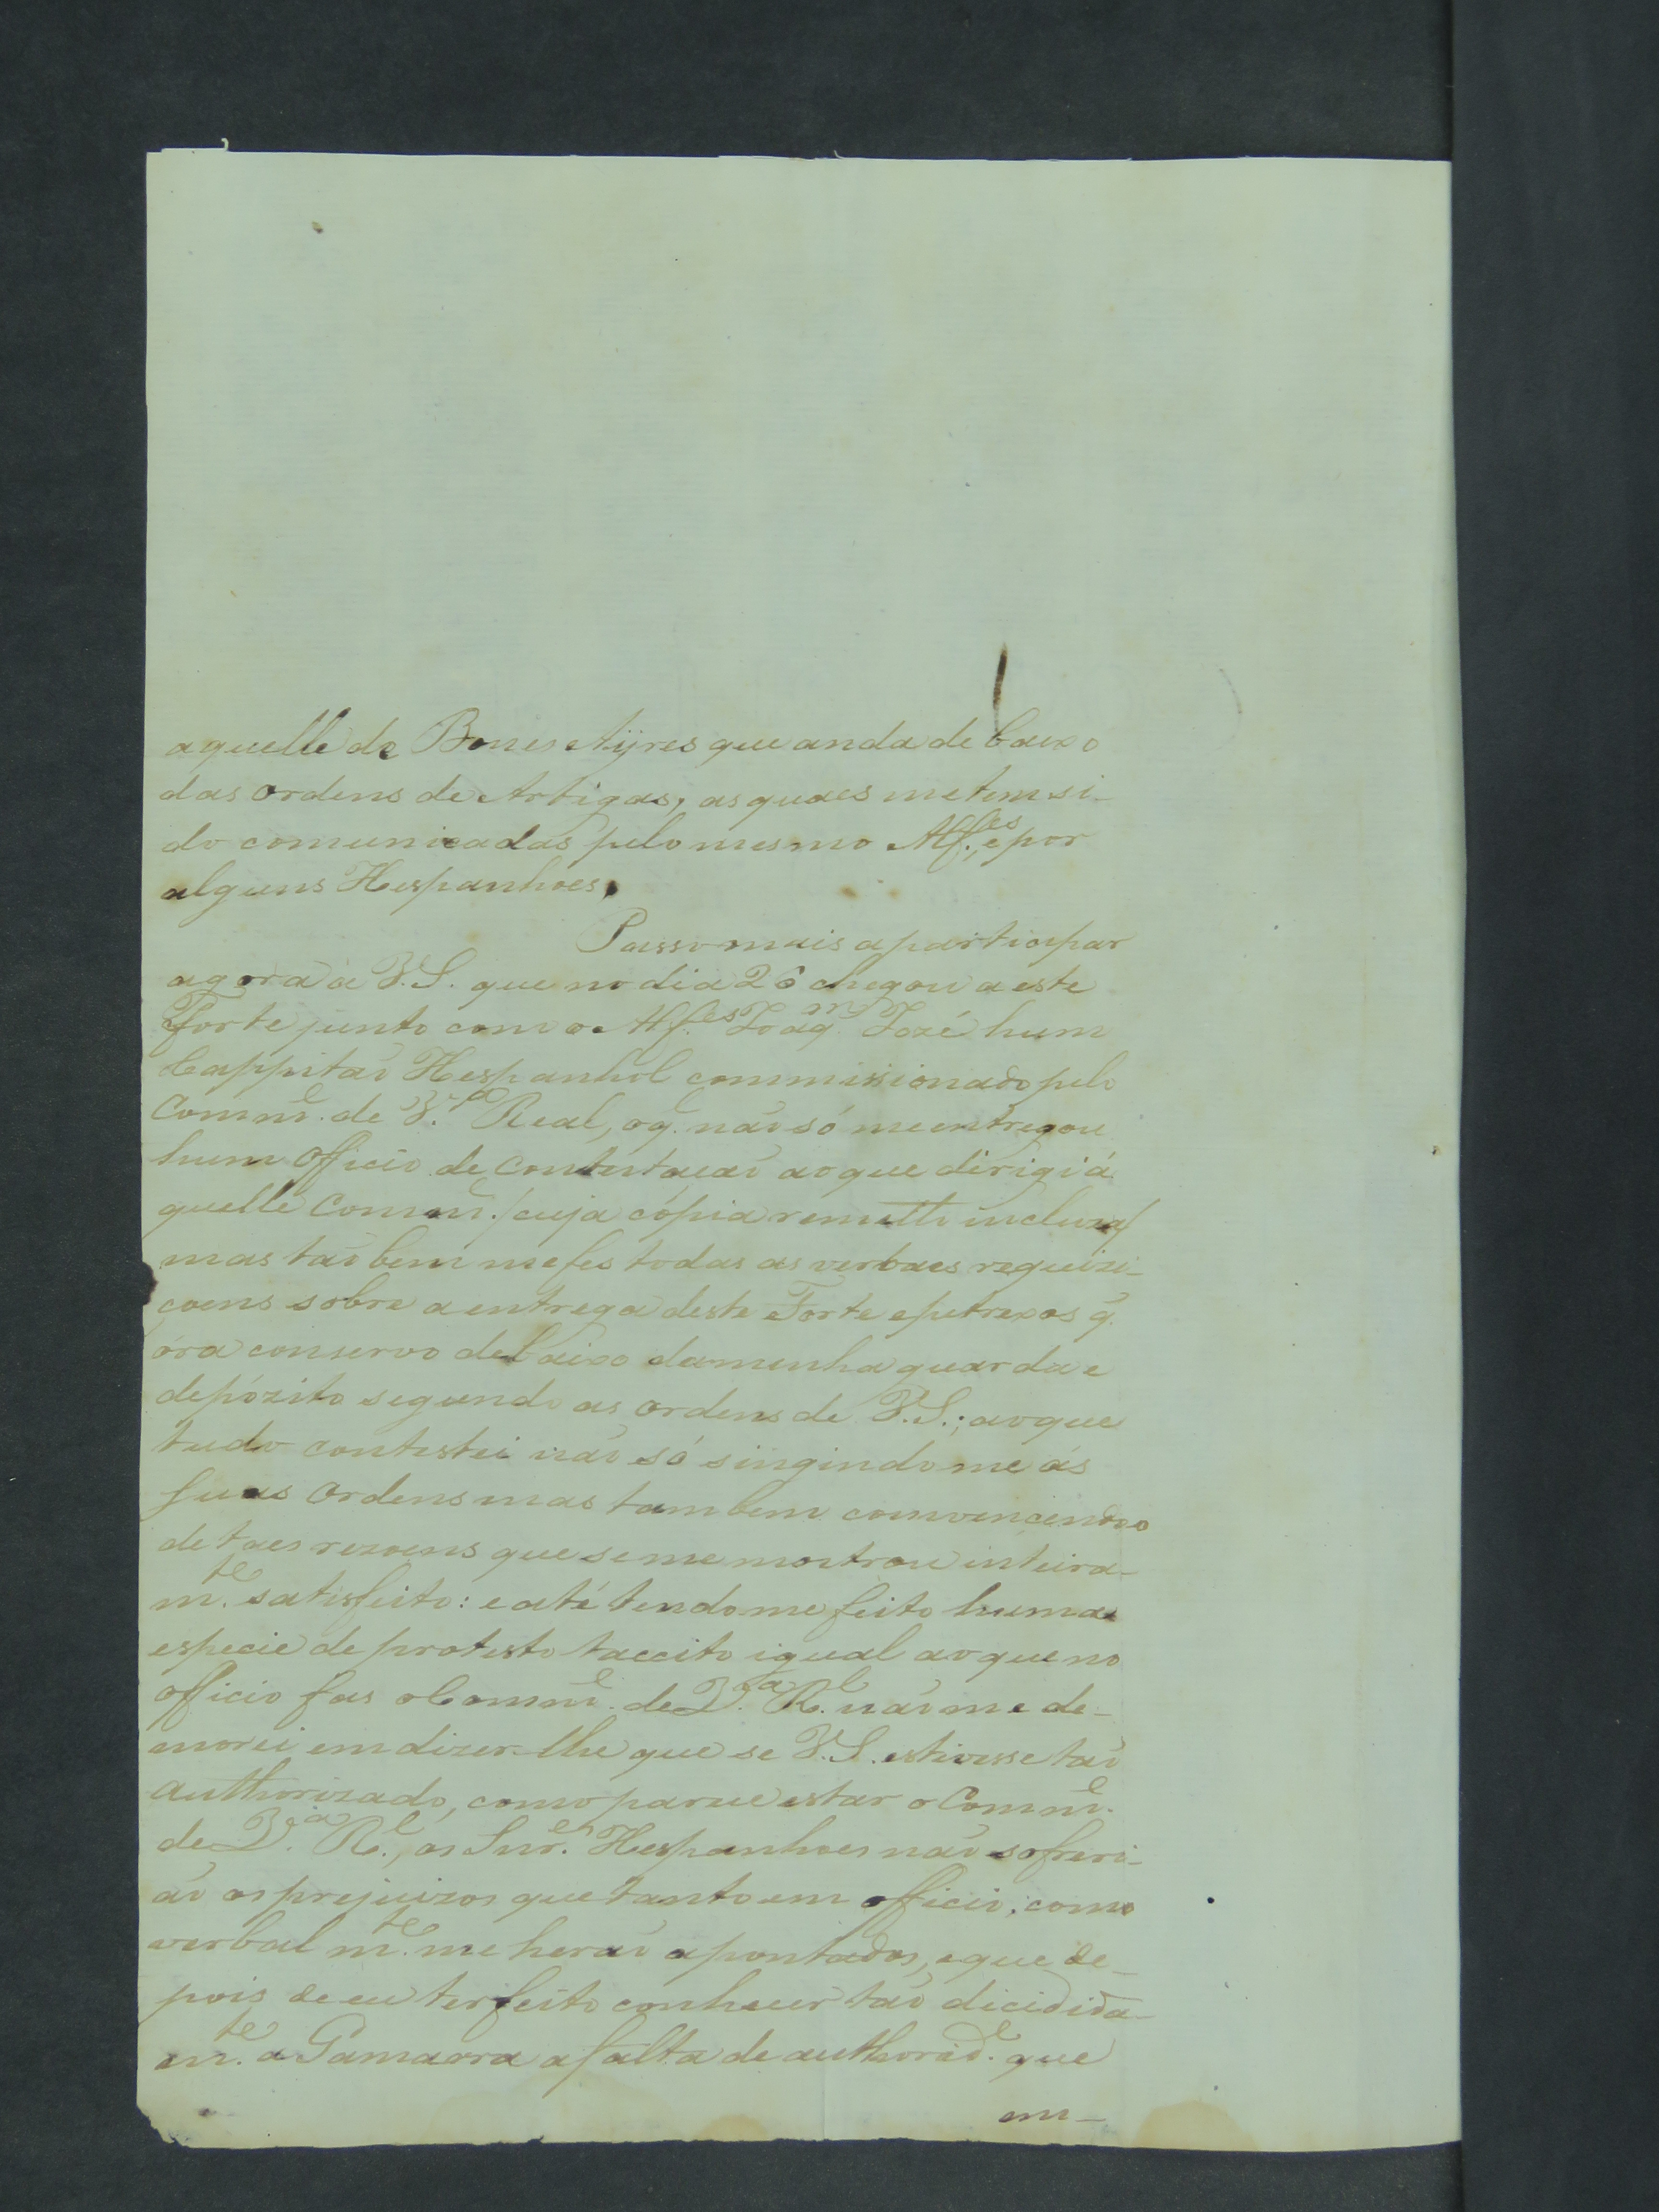 aquelle de Bones Aÿres que anda de baixo
das ordens de Artigas, as quaes me tem si-
do comunicadas pelo mesmo Alf.es, e por
alguns Hespanhoes,
Passo mais a participar
agora a V.S. que no dia 26 chegou a este
Forte junto com o Alf.es Joaq.m Jozé hum
Cappitaõ Hespanhol commissionado pelo
Comm.e de V.a Real, o q̃. naõ só me entregou
hum Officio de Contestacaõ ao que dirigi á
quelle Comm.e /cuja cópia remetto incluza/
mas taõ bem me fes todas as verbaes requizi-
çoens sobre a entrega deste Forte e petrexos q̃.
óra conservo debaixo da minha guarda e
depózito segundo as Ordens de V.S.; ao que
tudo contestei naõ só singindome ás
suas Ordens mas tambem convencendoo
de taes rezoens que se me mostrou inteira-
m.te satisfeito: e até tendome feito huma
especie de protesto taccito igual ao que no
Officio fas o Comm.e de V.a R.l naõ me de-
morei em dizer-lhe que se V.S. estivesse taõ
authorizado, como parece estar o Comm.e
de V.a R.l, os Snr.es Hespanhoes naõ sofreri-
aõ os prejuizos que tanto em officio, como
verbal m.te me heraõ apontados, e que de-
pois de eu ter feito conhecer taõ dicidida-
m.te a Gamarra a falta de authorid.e que
em-